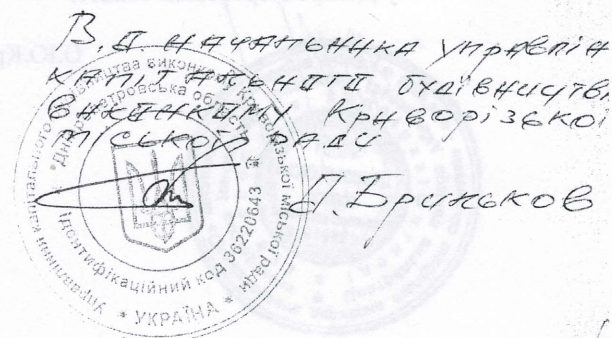 В.О. начальника управлін
капітального будівництв
виконкому Криворізької
міської ради
Бриньков
Управління капітального будівництва виконкому Криворізької міської ради
Дніпропетровська область
Ідентифікаційний код 36220643
* УКРАЇНА *